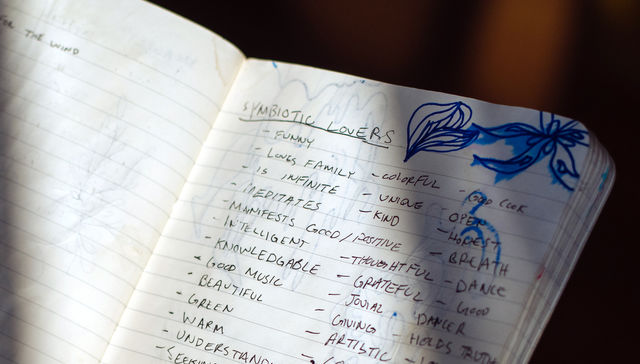 FOR THE WIND
SYMBIOTIC LOVERS
- FUNNY
- LOVES FAMILY
- IS INFINITE
- MEDITATES
- MANIFESTS GOOD / POSITIVE
- INTELLIGENT
- KNOWLEDGABLE
- GOOD MUSIC
- BEAUTIFUL
- GREEN
- WARM
- UNDERSTANDING
- COLORFUL
- UNIQUE
- KIND
- THOUGHTFUL
- GRATEFUL
- JOVIAL
- GIVING
- ARTISTIC
- GOOD COOK
- OPEN
- HONEST
- BREATH
- DANCE
- GOOD
DANCER
- HOLDS TRUTH